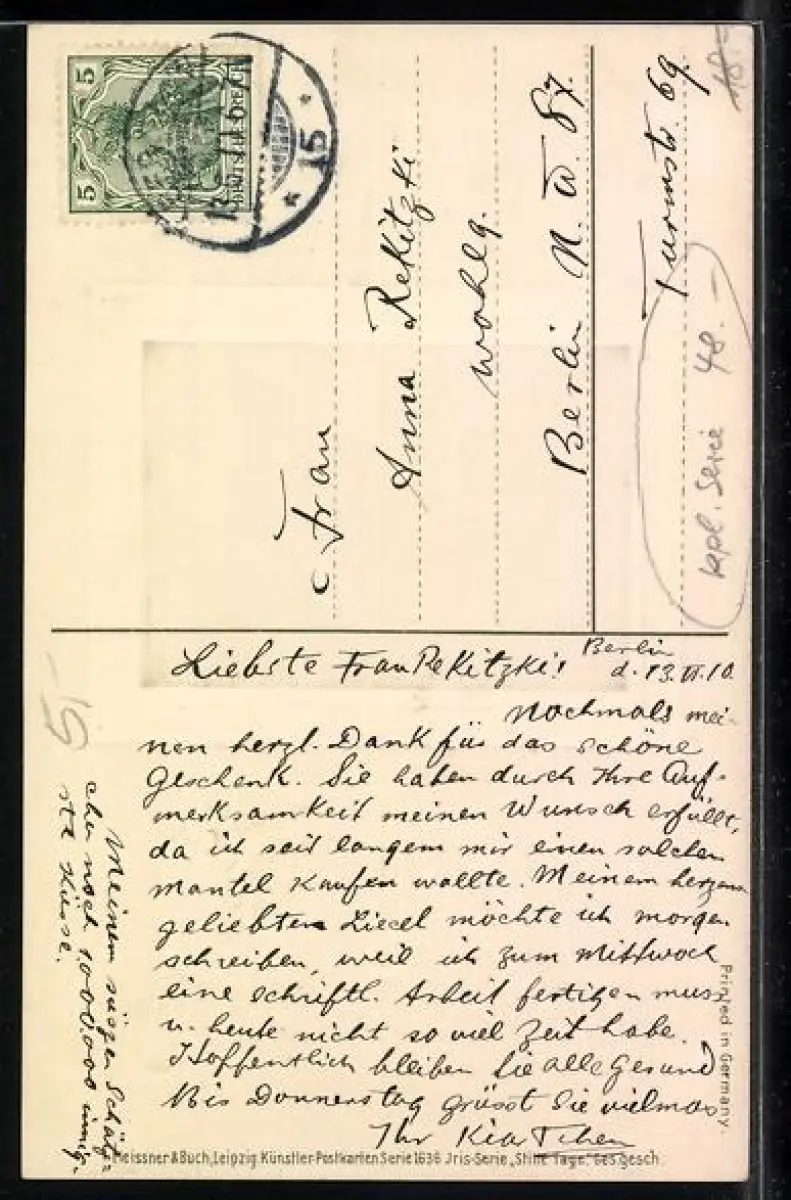 5 5
DEUTSCHES REICH
* 15 *
Frau
Anna Rekitzki
wohlg.
Berlin N. W. 87.
Turmstr. 69.
18.-
kpl. Serie 48.-
5,-
Berlin
d. 13.VI.10.
Liebste Frau Rekitzki!
Nochmals mei-
nen herzl. Dank für das schöne
Geschenk. Sie haben durch Ihre Auf-
merksamkeit meinen Wunsch erfüllt,
da ich seit langem mir einen solchen
Mantel kaufen wollte. Meinem herzens
geliebten Liecel möchte ich morgen
schreiben, weil ich zum Mittwoch
eine schriftl. Arbeit fertigen muss
u. heute nicht so viel Zeit habe.
Hoffentlich bleiben Sie alle gesund
Bis Donnerstag grüsst Sie vielmas
Ihr
Meinem süszen Schätz-
chen noch 1000.000 innig-
ste Küsse.
Meissner & Buch, Leipzig. Künstler-Postkarten Serie 1636 Jris-Serie „Stille Tage." Ges. gesch.
Printed in Germany.